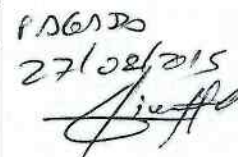 PAGADO
27/08/2015